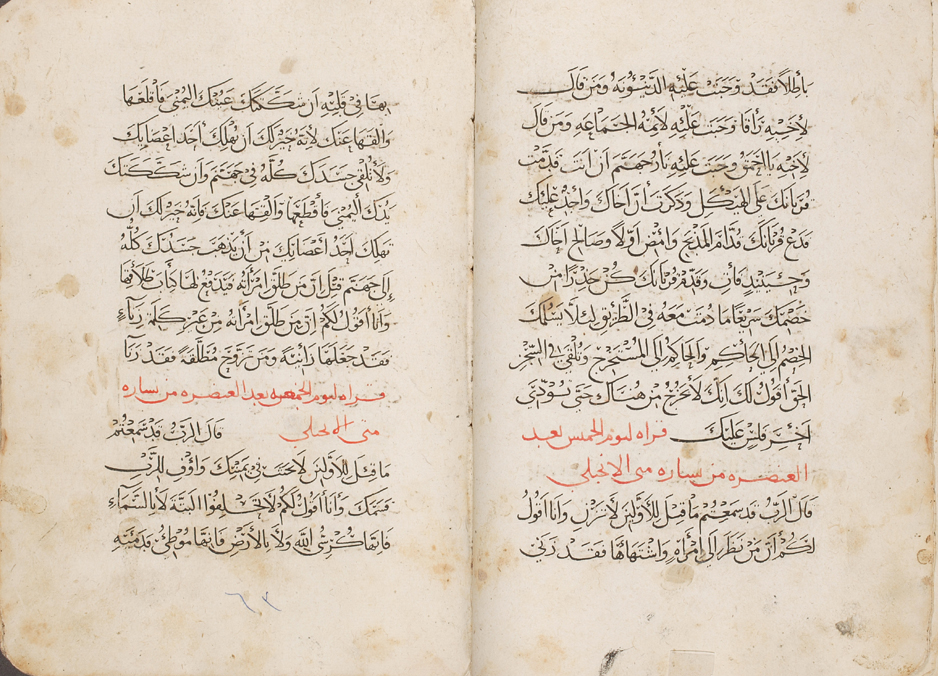 باطلاً فقد وجبت عليه الدينونه ومن قال
لاخيه راقا وجبت عليه لايمه الجماعه ومن قال
لاخيه يا احمق وجبت عليه نار جهنم ان انت قدمت
قربانك على الهيكل وذكرت أن أخاك واجد عليك
فدع قربانك قدام المذبح وامض اولا وصالح اخاك
وحينيذ فأت وقدم قربانك كن حذرا من
خصمك سريعا ما دمت معه في الطريق ليلا يسلمك
الخصم الى الحاكم والحاكم الى المستخرج وتلقى في السجن
الحق أقول لك انك لا تخرج من هناك حتى تودي
اخر فلس عليك قراه ليوم الخميس بعد
العنصره من بشاره متى الانجيلي
قال الرب قد سمعتم ما قيل للاولين لا تزن وانا اقول
لكم ان من نظر الى امرأه واشتهاها فقد زنى
بها في قلبه ان شككتك عينك اليمنى فاقلعها
والقها عنك لانه خير لك ان تهلك احد اعضايك
ولا تلقى جسدك كله في جهنم وان شككتك
يدك اليمنى فاقطعها والقها عنك فانه خير لك ان
تهلك احد اعضائك من أن يذهب جسدك كله
إلى جهنم قيل ان من طلق امرأته فيدفع لها كتاب طلاقها
وانا اقول لكم ان من طلق امرأته من غير كلمة زناء
فقد جعلها زانية ومن تزوج مطلقة فقد زنا
قراه ليوم الجمعه بعد العنصره من بشاره
متى الانجيلي قال الرب قد سمعتم
ما قيل للأولين لا تحنث في يمينك واوف للرب
قسمك وأنا أقول لكم لا تحلفوا البتة لا بالسماء
فانها كرسي الله ولا بالأرض فانها موطئ قدميه
٦٢